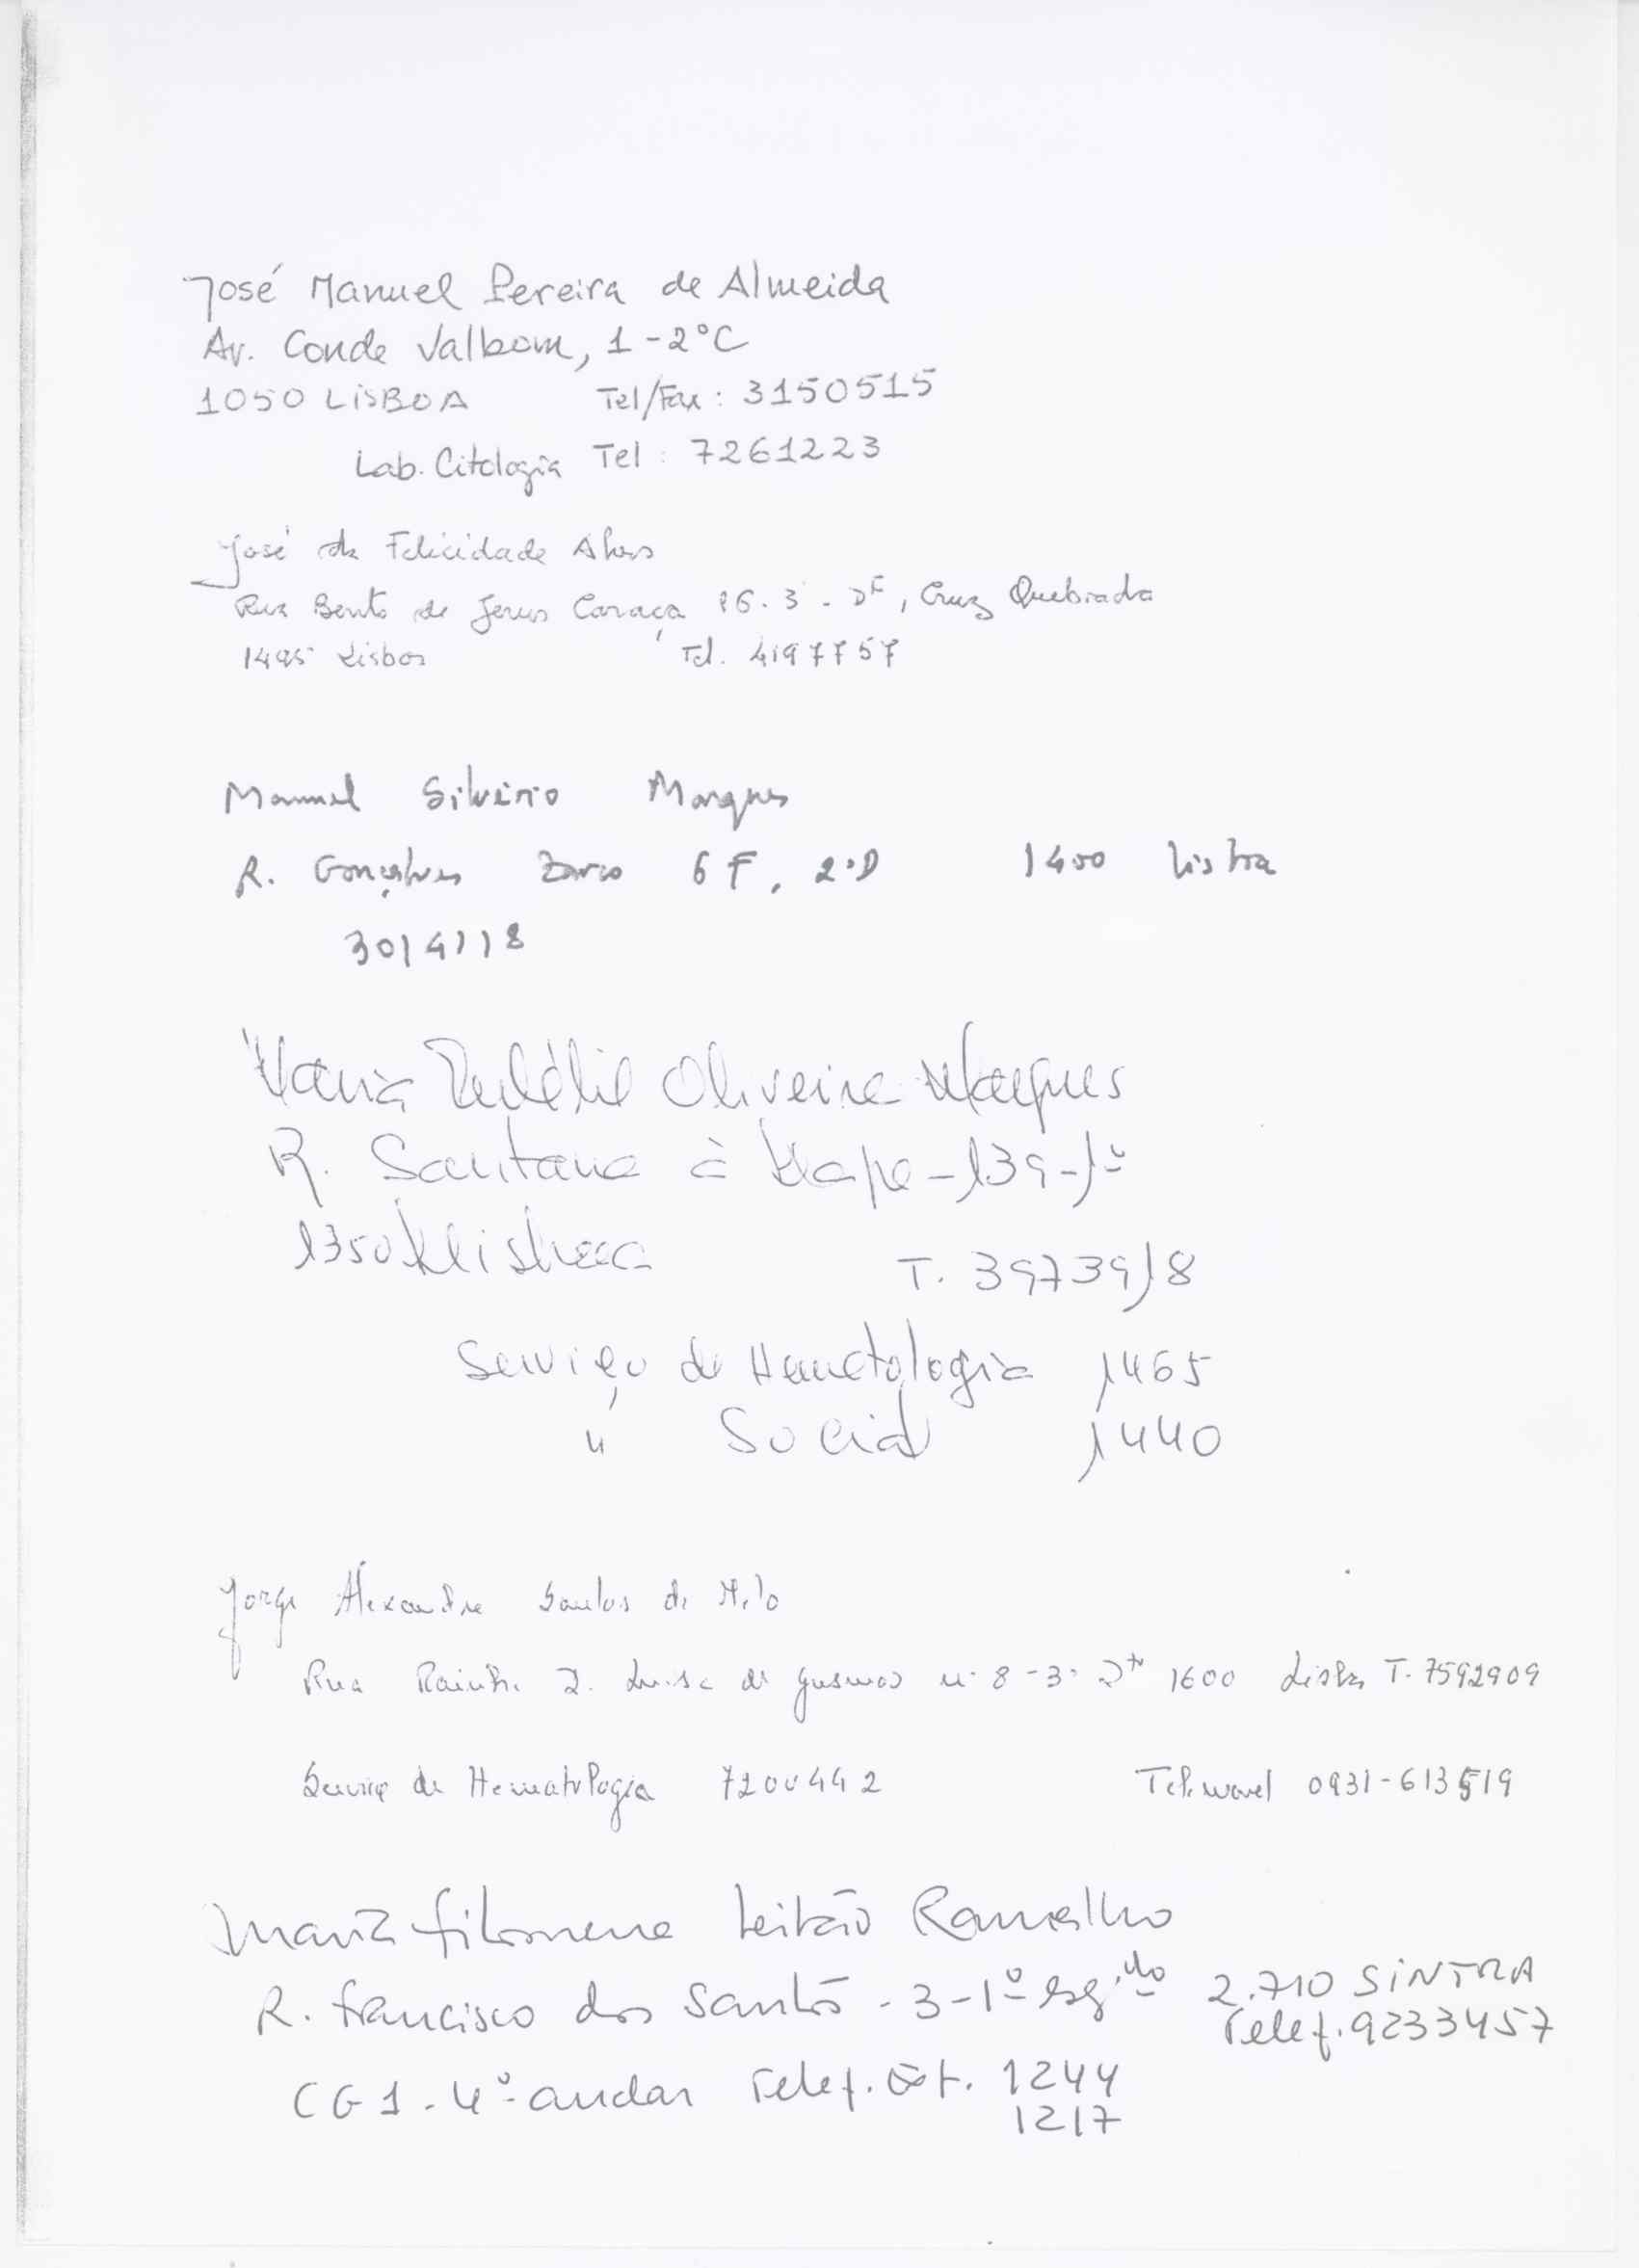 José Manuel Pereira de Almeida
Av. Conde Valbom, 1-2ºC
1050 LISBOA Tel/Fax: 3150515
Lab. Citologia Tel: 7261223
José da Felicidade Alves
Rua Bento de Jesus Caraça 16.3-Dt, Cruz Quebrada
1495 Lisboa Tel. 4197757
Manuel Silvério Marques
R. Gonçalves Zarco 6F, 2ºD 1400 Lisboa
3014118
Maria Oliveira Marques
R. Santana à Lapa-139-1º
1350 Lisboa T. 3973918
Serviço de Hematologia 1465
" Social 1440
Jorge Alexandre Santos de Melo
Rua Rainha D. Luisa de Gusmão nº 8-3º Dto 1600 Lisboa T. 7592909
Serviço de Hematologia 7200442 Telemovel 0931-613519
Maria Filomena Leitão Ramalho
R. Francisco dos Santos - 3-1º esqº 2.710 SINTRA
Telef. 9233457
CG1-4º andar Telef. Ext. 1244
1217